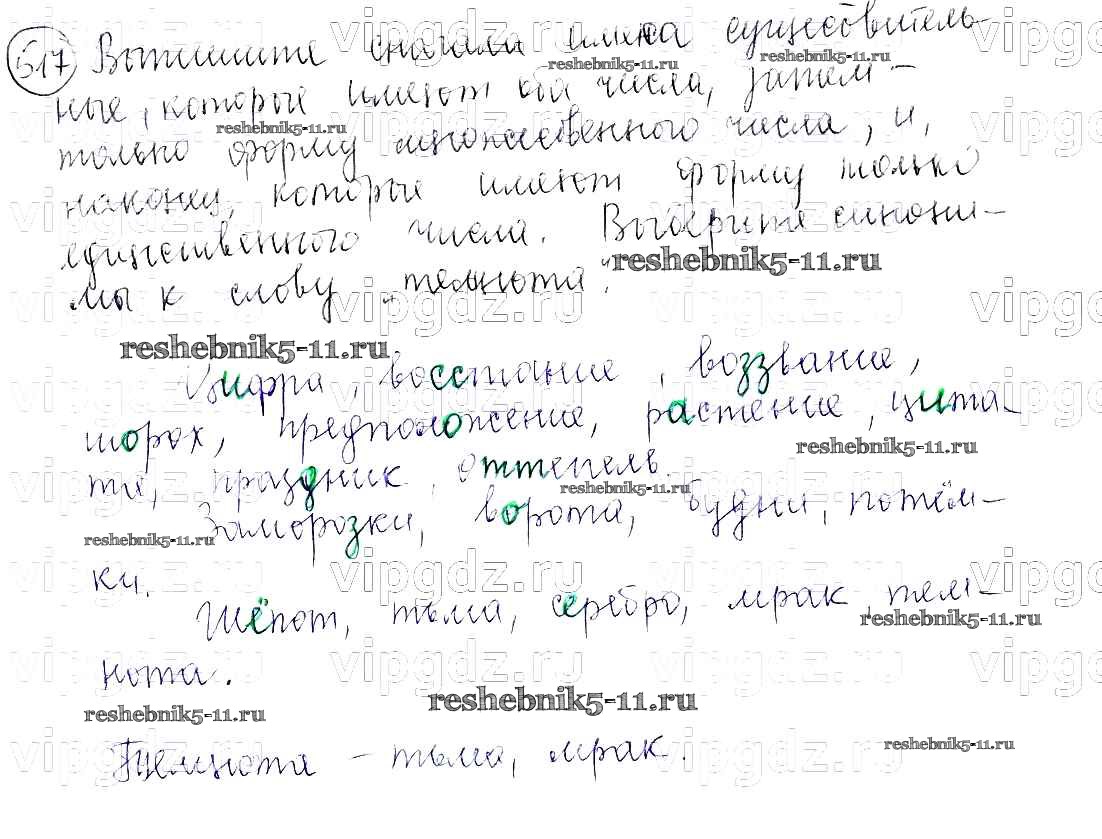 517 Выпишите сначала имена существитель-
ные, которые имеют оба числа, затем -
только форму множественного числа, и,
наконец, которые имеют форму только
единственного числа. Выберите синони-
мы к слову „темнота".
Цифра, восстание, воззвание,
шорох, предположение, растение, цита-
ты, праздник, оттепель.
Заморозки, ворота, будни, потём-
ки.
Шёпот, тьма, серебро, мрак, тем-
нота.
Темнота - тьма, мрак.
vipgdz.ru
reshebnik5-11.ru